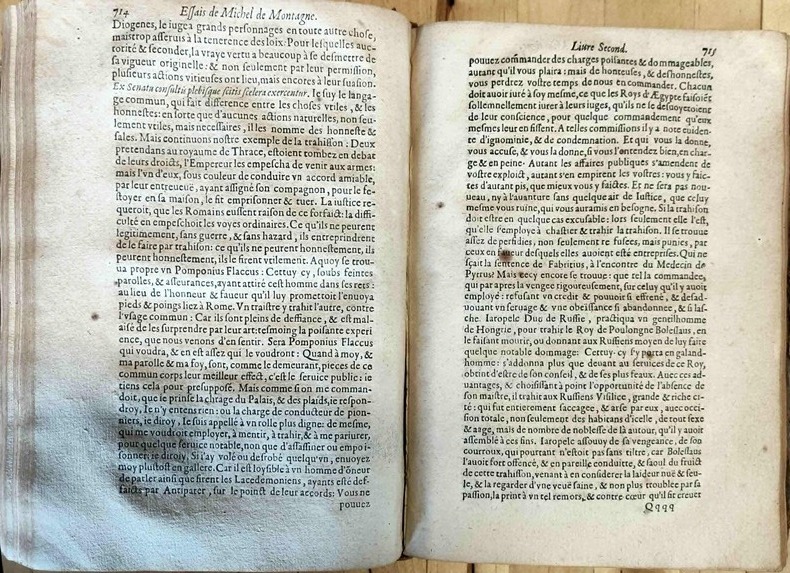 714 Essais de Michel de Montagne.
Diogenes, le iugea grands personnages en toute autre chose,
mais trop asseruis à la reuerence des loix: Pour lesquelles auc-
torité & seconder, la vraye vertu a beaucoup à se desmettre de
sa vigueur originelle: & non seulement par leur permission,
plusieurs actions vitieuses ont lieu, mais encores à leur suasion.
Ex Senatus consultis plebisque scitis scelera exercentur. Ie suy le langa-
ge commun, qui fait difference entre les choses vtiles, & les
honnestes: en forte que d'aucunes actions naturelles, non seu-
lement vtiles, mais necessaires, il les nomme des honneste &
sales. Mais continuons nostre exemple de la trahison: Deux
pretendans au royaume de Thrace, estoient tombez en debat
de leurs droicts, l'Empereur les empescha de venir aux armes:
mais l'vn d'eux, sous couleur de conduire vn accord amiable,
par leur entreueuë, ayant assigné son compagnon, pour le fe-
stoyer en sa maison, le fit emprisonner & tuer. La iustice re-
queroit, que les Romains eussent raison de ce forfaict: la diffi-
culté en empeschoit les voyes ordinaires. Ce qu'ils ne peurent
legitimement, sans guerre, & sans hazard, ils entreprindrent
de le faire par trahison: ce qu'ils ne peurent honnestement, ils
peurent honnestement, ils le firent vtilement. Aquoy se trou-
ua propre vn Pomponius Flaccus: Cettuy cy, soubs feintes
parolles, & asseurances, ayant attiré cest homme dans ses rets:
au lieu de l'honneur & faueur qu'il luy promettoit l'enuoya
pieds & poings liez à Rome. Vn traistre y trahit l'autre, contre
l'vsage commun: Car ils sont pleins de deffiance, & est mal-
aisé de les surprendre par leur art: tesmoing la poisante experi
ence, que nous venons d'en sentir. Sera Pomponius Flaccus
qui voudra, & en est assez qui le voudront: Quand à moy, &
ma parolle & ma foy, sont, comme le demeurant, pieces de ce
commun corps leur meilleur effect, c'est le seruice public: ie
tiens cela pour presupposé. Mais comme si on me comman-
doit, que ie prinse la chrage du Palais, & des plaids, ie respon-
droy, Ie n'y entens rien: ou la charge de conducteur de pion-
niers, ie diroy, Ie suis appellé à vn rolle plus digne: de mesme,
qui me voudroit employer, à mentir, à trahir, & à me pariurer,
pour quelque seruice notable, non que d'assassiner ou empoi-
sonner: ie diroy, Si i'ay volé ou desrobé quelqu'vn, enuoyez
moy plustost en gallere. Car il est loysible à vn homme d'honeur
de parler ainsi que firent les Lacedemoniens, ayants esté def-
faicts par Antipater, sur le poinct de leur accords: Vous ne
pouuez
Liure Second. 715
pouuez commander des charges poisantes & dommageables,
autant qu'il vous plaira: mais de honteuses, & deshonnestes,
vous perdrez vostre temps de nous en commander. Chacun
doit auoir iuré à soy mesme, ce que les Roys d'Ægypte faisoiēt
sollemnellement iurer à leurs iuges, qu'ils ne se desuoyeroient
de leur conscience, pour quelque commandement qu'eux
mesmes leur en fissent. A telles commissions il y a note euiden-
te d'ignominie, & de condemnation. Et qui vous la donne,
vous accuse, & vous la donne, si vous l'entendez bien, en char-
ge & en peine. Autant les affaires publiques s'amendent de
vostre exploict, autant s'en empirent les vostres: vous y faic-
tes d'autant pis, que mieux vous y faictes. Et ne sera pas nou-
ueau, ny à l'auanture sans quelque air de Iustice, que celuy
mesme vous ruine, qui vous aura mis en besogne. Si la trahison
doit estre en quelque cas excusable: lors seulement elle l'est,
qu'elle s'employe à chastier & trahir la trahison. Il se trouue
assez de perfidies, non seulement refusees, mais punies, par
ceux en faueur desquels elles auoient esté entreprises. Qui ne
sçait la sentence de Fabritius, à l'encontre du Medecin de
Pyrrus? Mais cecy encore se trouue: que tel la commandee,
qui par apres la vengee rigoureusement, sur celuy qu'il y auoit
employé: refusant vn credit & pouuoir si effrené, & desad-
uouant vn seruage & vne obeïssance si abandonnee, & si las-
che. Iaropelc Duc de Russie, practiqua vn gentilhomme
de Hongrie, pour trahir le Roy de Poulongne Boleslaus, en
le faisant mourir, ou donnant aux Russiens moyen de luy faire
quelque notable dommage: Cettuy-cy s'y porta en galand-
homme: s'addonna plus que deuant au seruices de ce Roy,
obtint d'estre de son conseil, & de ses plus feaux. Auec ces ad-
uantages, & choisissant à point l'opportunité de l'absence de
son maistre, il trahit aux Russiens Vislicie, grande & riche ci-
té: qui fut entierement saccagee, & arse par eux, auec occi-
sion totale, non seulement des habitans d'icelle, de tout sexe
& aage, mais de nombre de noblesse de là autour, qu'il y auoit
assemblé à ces fins. Iaropelc assouuy de sa vengeance, de son
courroux, qui pourtant n'estoit pas sans tiltre, car Boleslaus
l'auoit fort offencé, & en pareille conduitte, & saoul du fruict
de cette trahison, venant à en considerer la laideur nuë & seu-
le, & la regarder d'vne veuë saine, & non plus troublee par sa
passion, la print à vn tel remors, & contre cœur qu'il fit creuer
Qqqq